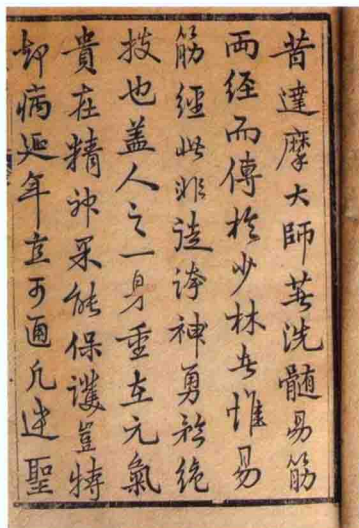 昔達摩大師著洗髓易筋
両经而傳於少林者惟易
筋經此非徒誇神勇矜絶
技也盖人之一身重在元氣
貴在精神果能保護豈特
却病延年立可通凡進聖